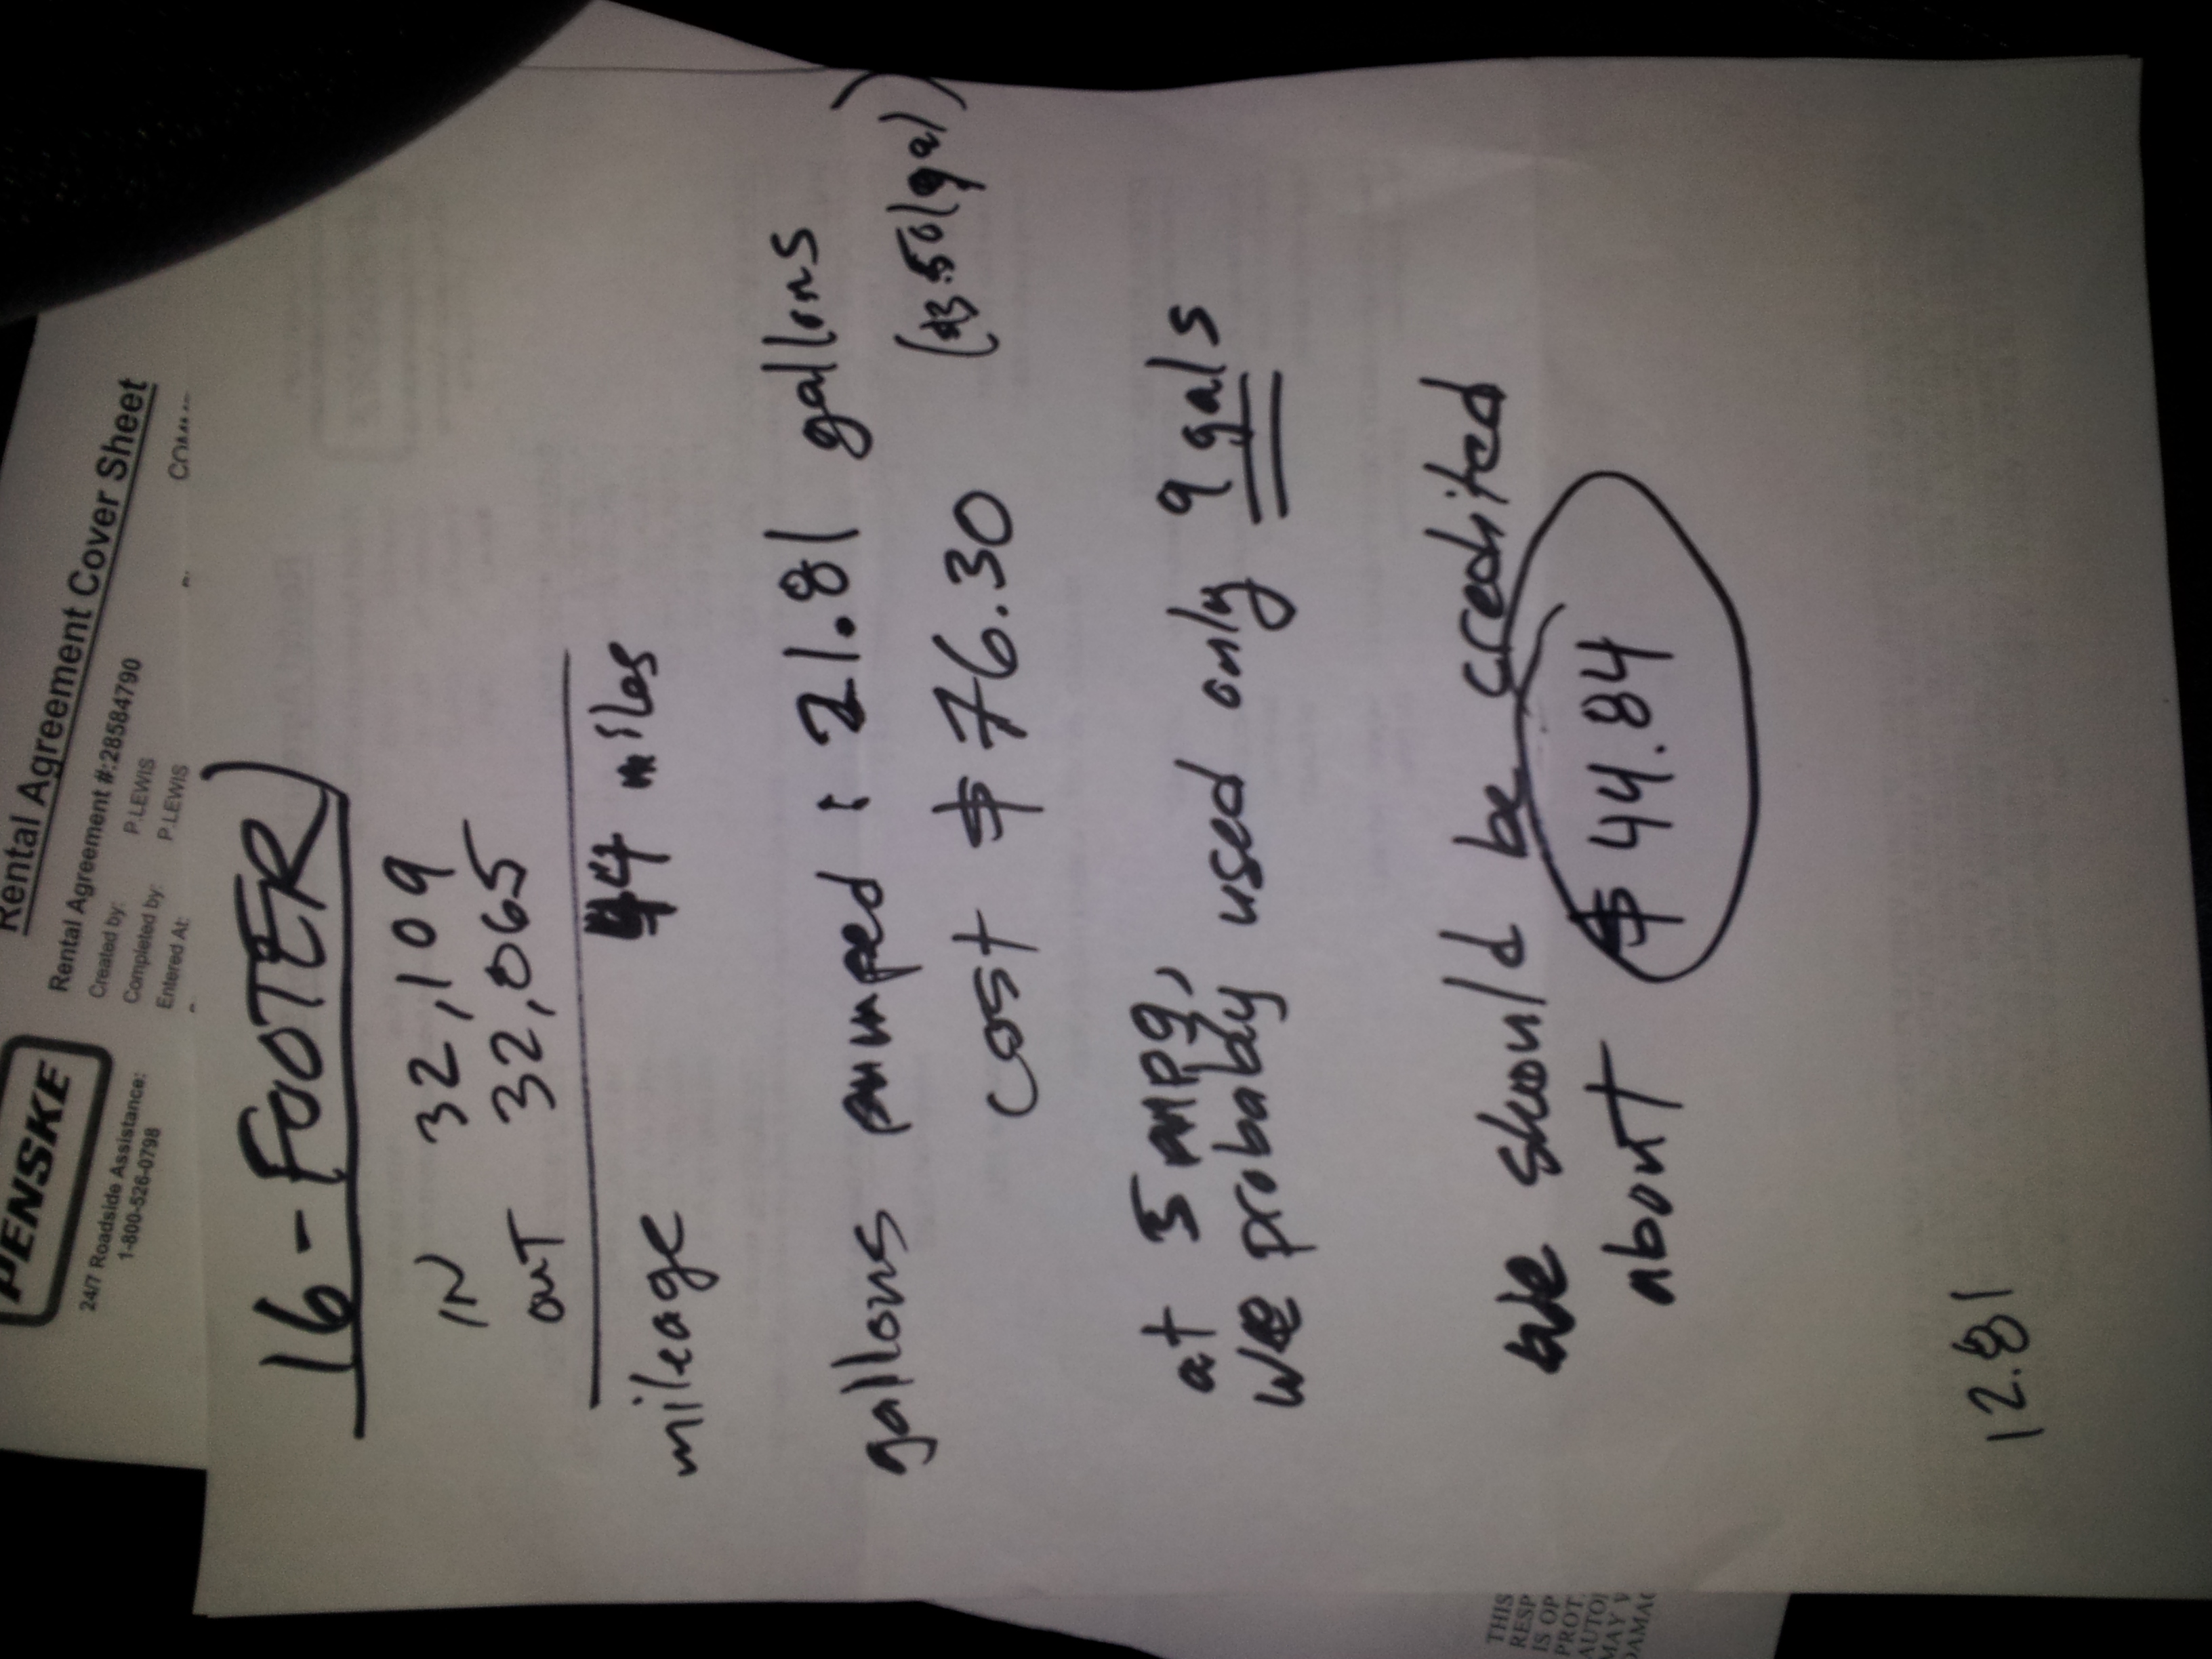 PENSKE
24/7 Roadside Assistance:
1-800-526-0798
Rental Agreement Cover Sheet
Rental Agreement #:28584790
Created by: P.LEWIS
Completed by: P.LEWIS
Entered At:
16-FOOTER
IN 32,109
OUT 32,065
mileage 44 miles
gallons pumped : 21.81 gallons
cost $76.30 ($3.50/gal)
at 5 mpg,
we probably used only 9 gals
we should be credited
about $44.84
12.81
THIS
RESP
IS OP
PROT
AUTO
MAY
DAMAG